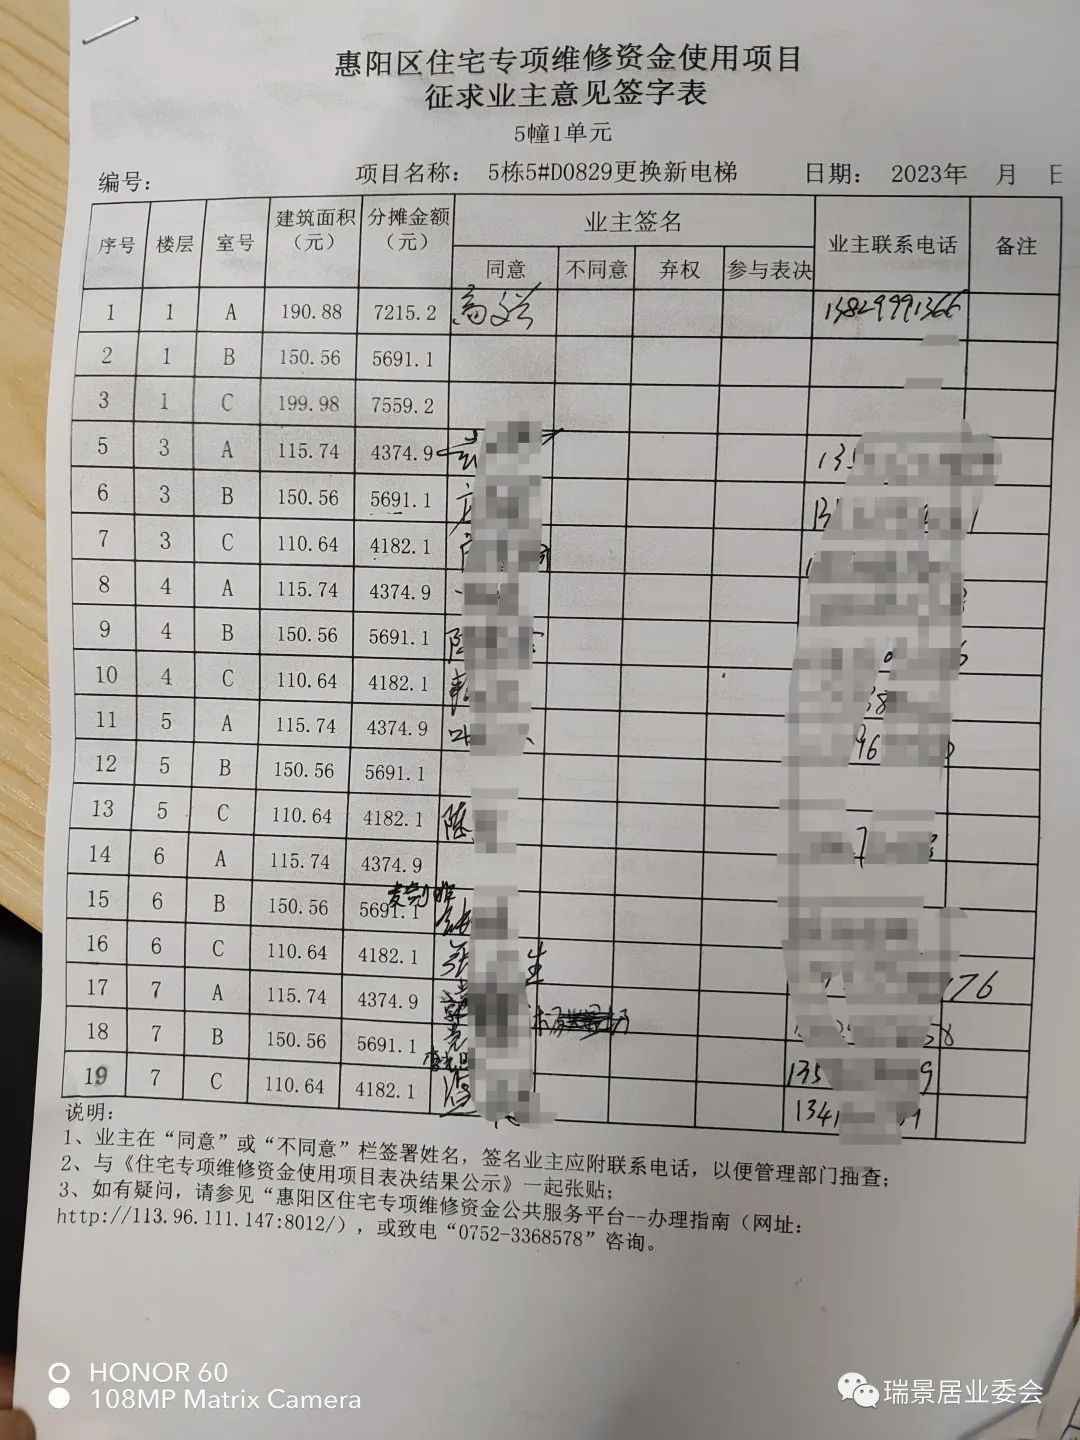 惠阳区住宅专项维修资金使用项目
征求业主意见签字表
5幢1单元
编号： 项目名称： 5栋5#D0829更换新电梯 日期： 2023年 月 日
序号 楼层 室号 建筑面积（元） 分摊金额（元） 业主签名 业主联系电话 备注
同意 不同意 弃权 参与表决
1 1 A 190.88 7215.2 13829991366
2 1 B 150.56 5691.1
3 1 C 199.98 7559.2
5 3 A 115.74 4374.9 135
6 3 B 150.56 5691.1
7 3 C 110.64 4182.1
8 4 A 115.74 4374.9
9 4 B 150.56 5691.1 陈
10 4 C 110.64 4182.1
11 5 A 115.74 4374.9 叶 96
12 5 B 150.56 5691.1
13 5 C 110.64 4182.1 陈 7
14 6 A 115.74 4374.9
15 6 B 150.56 5691.1
16 6 C 110.64 4182.1 张 生
17 7 A 115.74 4374.9 176
18 7 B 150.56 5691.1 58
19 7 C 110.64 4182.1 135 9
134
说明：
1、业主在“同意”或“不同意”栏签署姓名，签名业主应附联系电话，以便管理部门抽查；
2、与《住宅专项维修资金使用项目表决结果公示》一起张贴；
3、如有疑问，请参见“惠阳区住宅专项维修资金公共服务平台--办理指南（网址：
http://113.96.111.147:8012/），或致电“0752-3368578”咨询。
HONOR 60
108MP Matrix Camera
瑞景居业委会